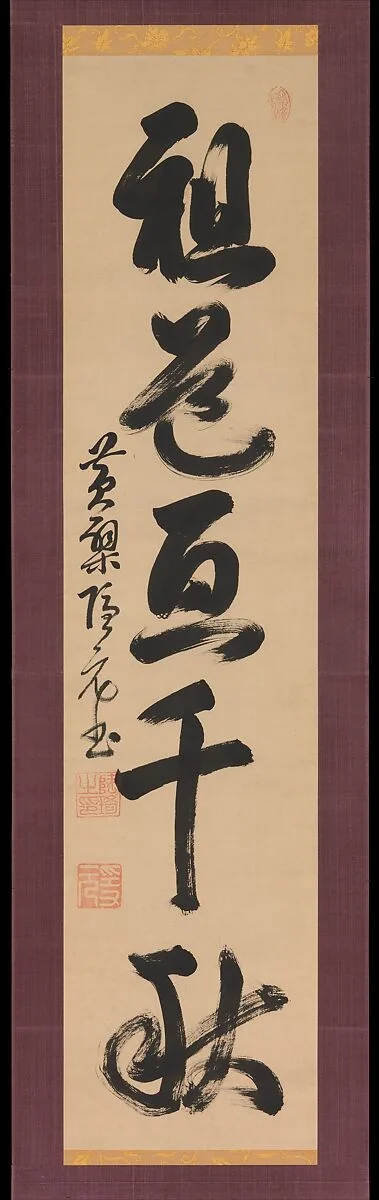 祖道亘千秋
黄檗隱元書